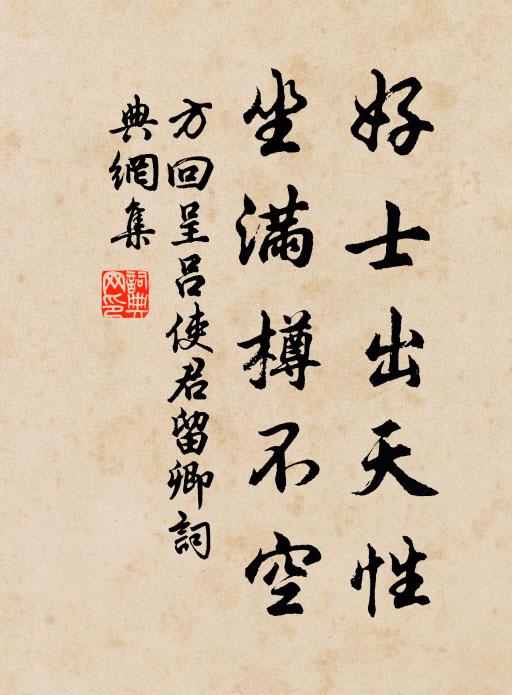 好士出天性
坐滿樽不空
方回呈呂使君留卿詞
典網集
詞典網印